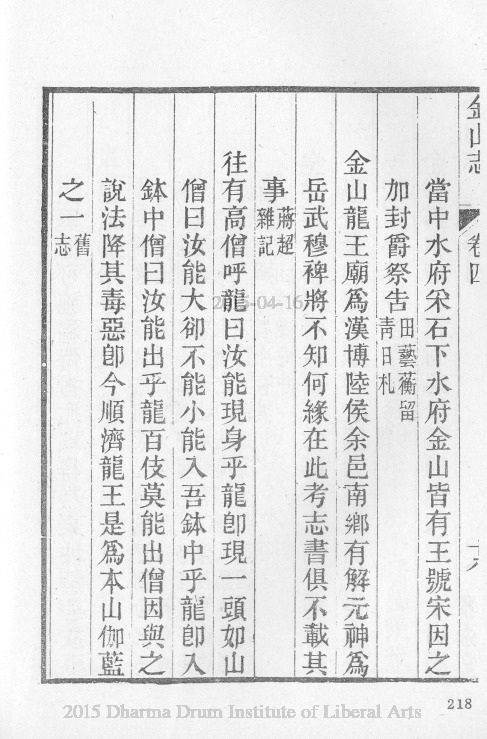 金山志 卷四 十八
當中水府采石下水府金山皆有王號宋因之
加封爵祭告田藝蘅留青日札
金山龍王廟爲漢博陸侯余邑南鄉有解元神爲
岳武穆裨將不知何緣在此考志書俱不載其
事蔣超雜記
往有高僧呼龍曰汝能現身乎龍卽現一頭如山
僧曰汝能大卻不能小能入吾鉢中乎龍卽入
鉢中僧曰汝能出乎龍百伎莫能出僧因與之
說法降其毒惡卽今順濟龍王是爲本山伽藍
之一舊志
218
2015 Dharma Drum Institute of Liberal Arts